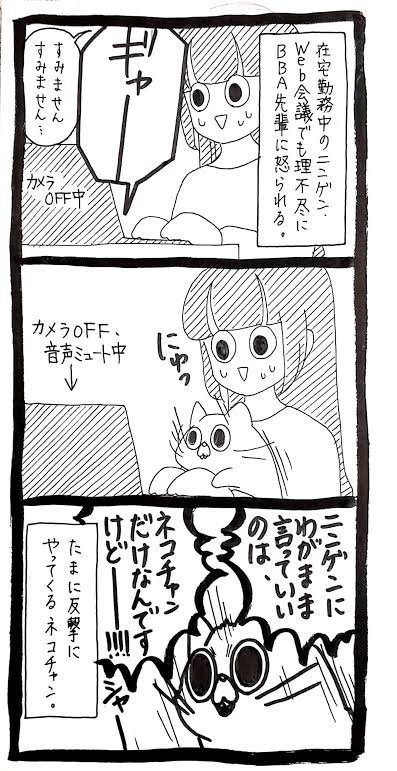 在宅勤務中のニンゲン、
Web会議でも理不尽に
BBA先輩に怒られる。
ギャー
すみません
すみません…
カメラ
OFF中
カメラOFF、
音声ミュート中
にゅっ
ニンゲンに
わがまま
言っていい
のは、
ネコチャン
だけなんです
けどーー!!!!
シャー
たまに反撃に
やってくるネコチャン。